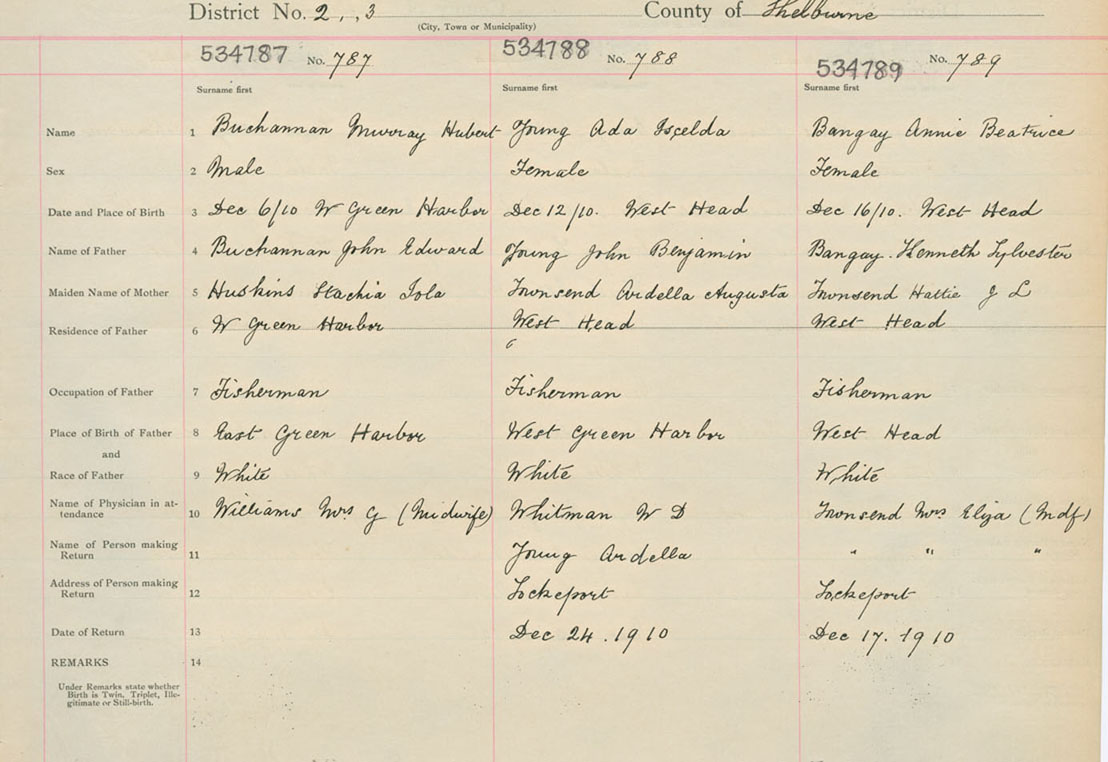 District No. 2,,3 County of Shelburne
(City, Town or Municipality)
534787 No. 787 534788 No. 788 534789 No. 789
Surname first Surname first Surname first
Name 1 Buchannan Murray Hubert Young Ada Isselda Bangay Annie Beatrice
Sex 2 Male Female Female
Date and Place of Birth 3 Dec 6/10 W Green Harbor Dec 12/10. West Head Dec 16/10. West Head
Name of Father 4 Buchannan John Edward Young John Benjamin Bangay. Kenneth Sylvester
Maiden Name of Mother 5 Huskins Stachia Iola Townsend Ardella Augusta Townsend Hattie J L
Residence of Father 6 W Green Harbor West Head West Head
Occupation of Father 7 Fisherman Fisherman Fisherman
Place of Birth of Father 8 East Green Harbor West Green Harbor West Head
and
Race of Father 9 White White White
Name of Physician in at-
tendance 10 Williams Mrs G (Midwife) Whitman W D Townsend Mrs Eliza (Mdf)
Name of Person making
Return 11 Young Ardella " " "
Address of Person making
Return 12 Lockeport Lockeport
Date of Return 13 Dec 24. 1910 Dec 17. 1910
REMARKS 14
Under Remarks state whether
Birth is Twin, Triplet, Ille-
gitimate or Still-birth.